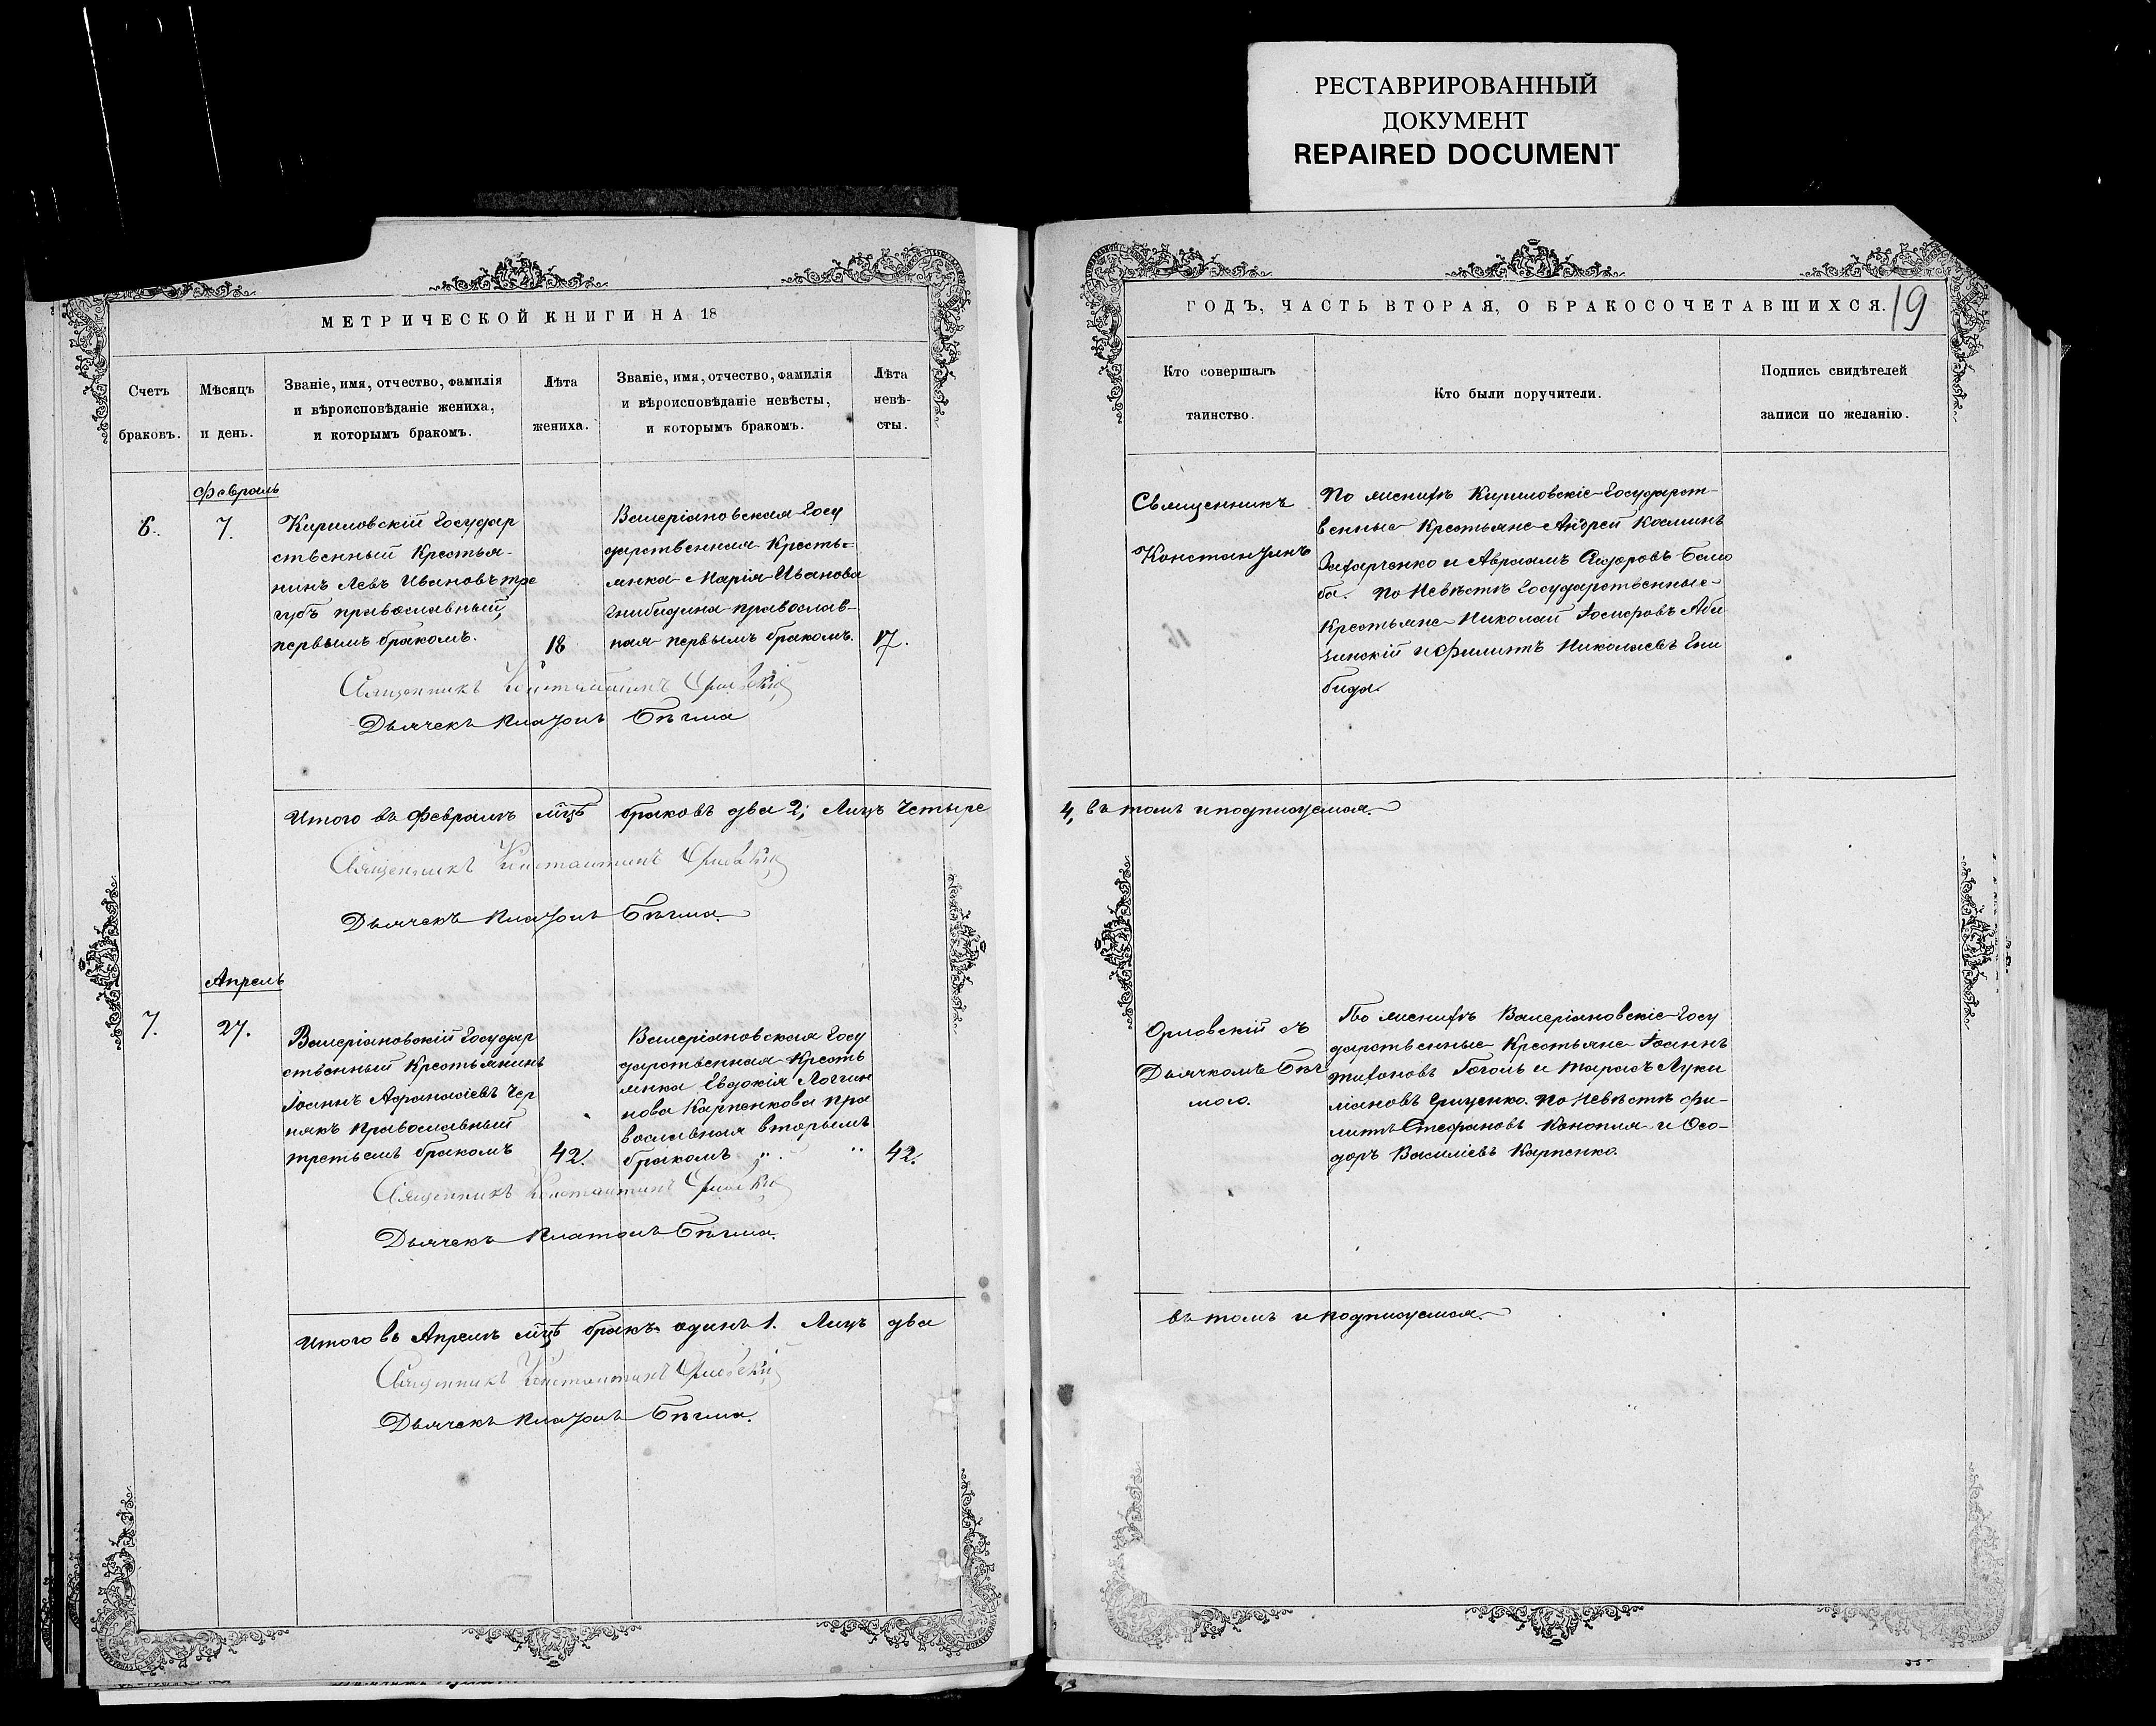 РЕСТАВРИРОВАННЫЙ
ДОКУМЕНТ
REPAIRED DOCUMENT
МЕТРИЧЕСКОЙ КНИГИ НА 18
Счетъ
браковъ.
Мѣсяцъ
и день.
Званіе, имя, отчество, фамилія
и вѣроисповѣданіе жениха,
и которымъ бракомъ.
Лѣта
жениха.
Званіе, имя, отчество, фамилія
и вѣроисповѣданіе невѣсты,
и которымъ бракомъ.
Лѣта
невѣ-
сты.
Февраль
6.
7.
Кириловскій Государ
ственный Крестья-
нинъ Левъ Ивановъ Тре
губъ православный,
первымъ бракомъ.
18
Валеріановская Госу
дарственная Кресть=
янка Марія Иванова
Гнибидина православ-
ная первымъ бракомъ.
17.
Священникъ Константинъ Орловскій
Дьячекъ Платонъ Бѣгма
Итого въ Февралѣ мцѣ браковъ два 2; Лицъ Четыре
Священникъ Константинъ Орловскій
Дьячекъ Платонъ Бѣгма.
Апрель
7.
27.
Валеріановскій Государ
ственный Крестьянинъ
Іоаннъ Афанасіевъ Чер
някъ Православный
третьемъ бракомъ
42.
Валеріановская Госу
дарственная Кресть
янка Евдокія Логгин
нова Карпенкова пра
вославная вторымъ
бракомъ „ „
42.
Священникъ Константинъ Орловскій
Дьячекъ Платонъ Бѣгма.
Итого въ Апрелѣ мцѣ бракъ одинъ 1. Лицъ два
Священникъ Константинъ Орловскій
Дьячекъ Платонъ Бѣгма.
ГОДЪ, ЧАСТЬ ВТОРАЯ, О БРАКОСОЧЕТАВШИХСЯ.
19
Кто совершалъ
таинство.
Кто были поручители.
Подпись свидѣтелей
записи по желанію.
Священникъ
Константинъ
По женихѣ Кириловскіе Государст-
венные Крестьяне Андрей Косминъ
Захарченко и Авраамъ Сидоровъ
По Невѣстѣ Государственные
Крестьяне Николай
и Филиппъ Николаевъ Гни
бида.
4, въ томъ и подписуемся.
Орловскій съ
Дьячкомъ Бѣг
мою.
По женихѣ Валеріановскіе Госу
дарственные Крестьяне Іоаннъ
Тихоновъ Гоголь и Тарасъ Луки
яновъ Гриценко. По Невѣстѣ Фи-
липъ Стефановъ Конопля и Ѳео-
доръ Василіевъ Карпенко.
въ томъ и подписуемся.